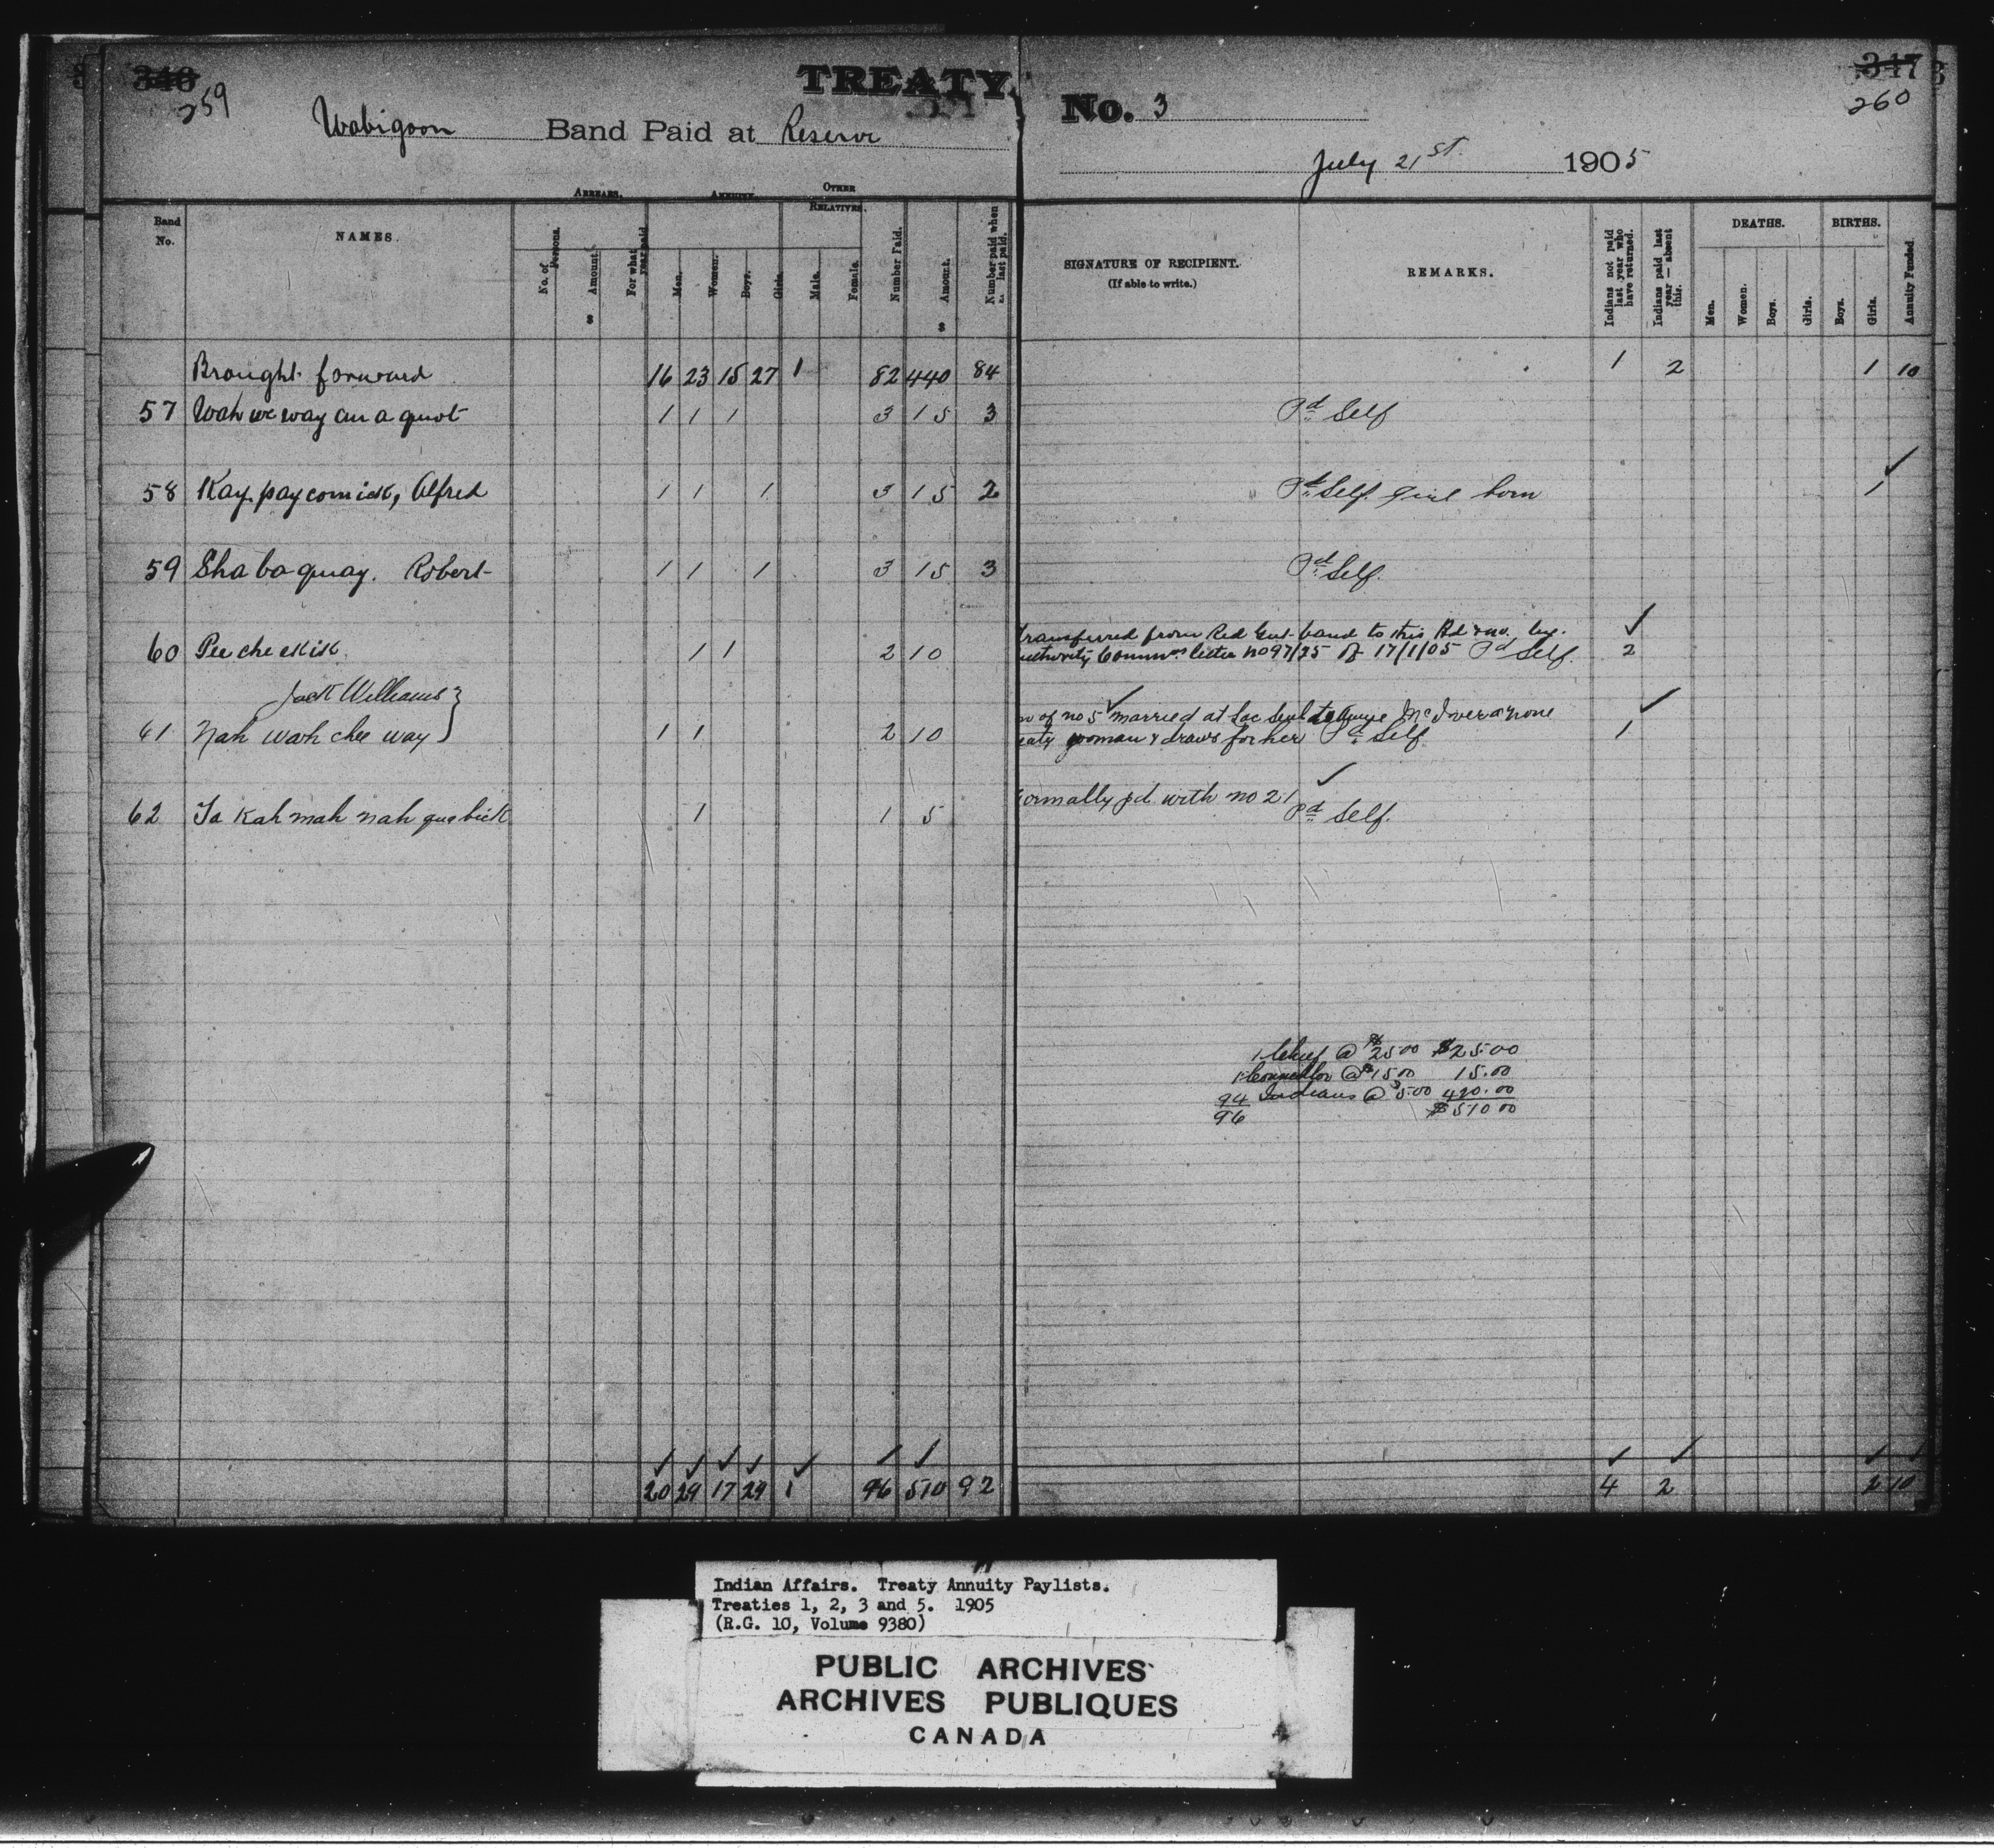 346 TREATY No. 3 347
259 260
Wabigoon Band Paid at Reserve July 21st 1905
Band No. NAMES. ARREARS. ANNUITY. OTHER RELATIVES. Number Paid. Amount. Number paid when last paid. SIGNATURE OF RECIPIENT. REMARKS. Indians not paid last year who have returned. Indians paid last year — absent this. DEATHS. BIRTHS. Annuity Funded.
No. of Persons. Amount. For what year paid. Men. Women. Boys. Girls. Male. Female. (If able to write.) Men. Women. Boys. Girls. Boys. Girls.
$ $
Brought forward 16 23 15 27 1 82 440 84 1 2 1 10
57 Wah we way an a quot 1 1 1 3 15 3 Pd Self
58 Kay pay comick, Alfred 1 1 1 3 15 2 Pd Self girl born ✓ 1
59 Sha ba quay. Robert 1 1 1 3 15 3 Pd Self.
transferred from Red Gut band to this Bd & no. by ✓
60 Pee che ekik 1 1 2 10 authority Commrs letter no 97/75 of 17/1/05 Pd Self. 2
Jack Williams } of no 5 ✓ married at Lac Seul to McIver a none ✓
61 Nah wah chee way 1 1 2 10 woman & draws for her Pd Self 1
formally pd with no 21 ✓
62 Ta kah mah nah qua bick 1 1 5 Pd Self.
1 Chief @ $25.00 $25.00
1 Councillor @ $15.00 15.00
94 Indians @ $5.00 470.00
96 $510.00
✓ ✓ ✓ ✓ ✓ ✓ ✓ ✓ ✓ ✓ ✓
20 29 17 29 1 96 510 92 4 2 2 10
Indian Affairs. Treaty Annuity Paylists.
Treaties 1, 2, 3 and 5. 1905
(R.G. 10, Volume 9380)
PUBLIC ARCHIVES
ARCHIVES PUBLIQUES
CANADA